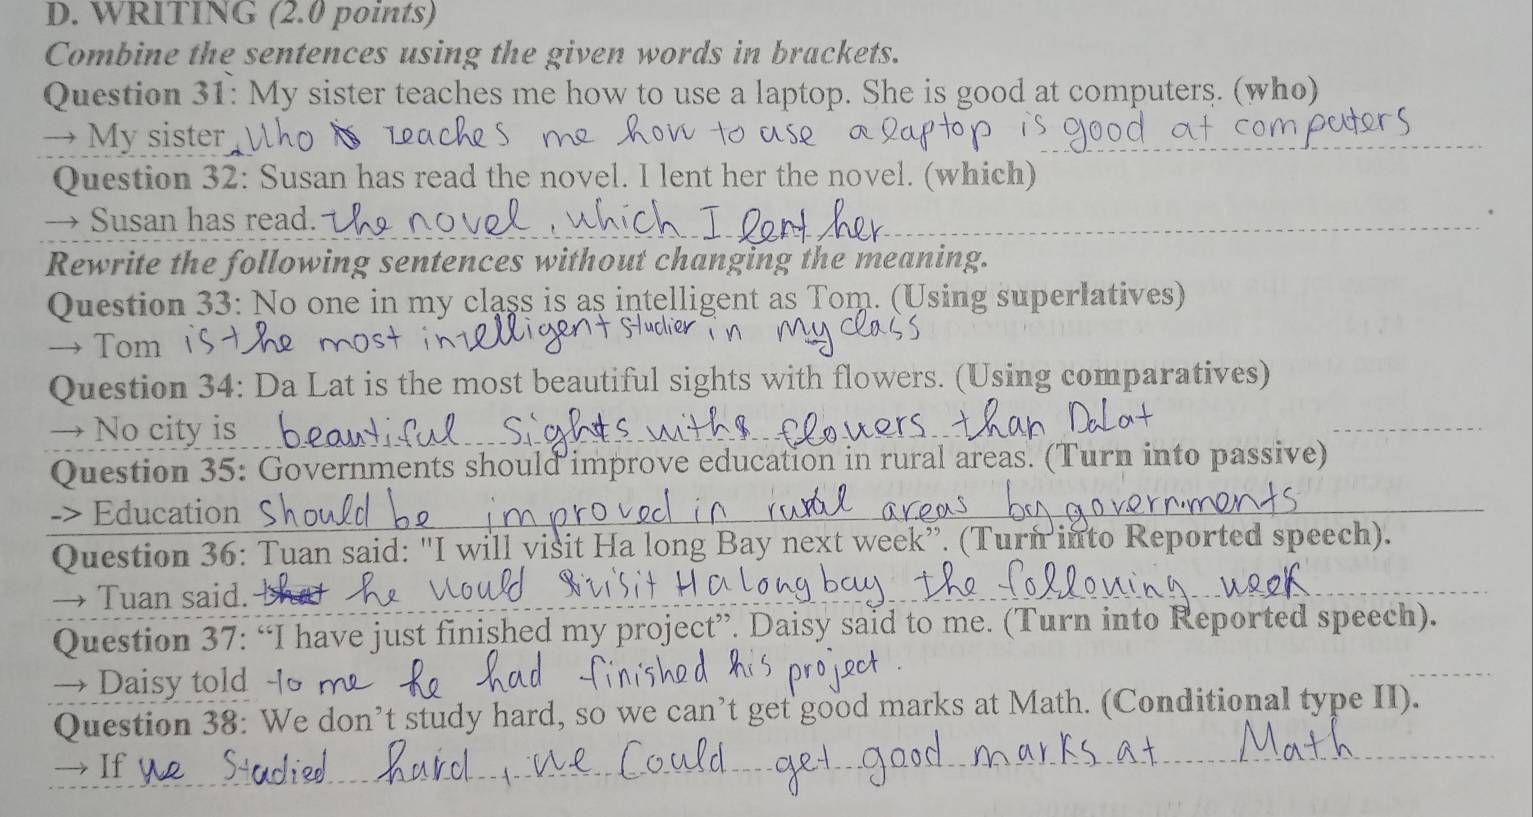 D. WRITING (2.0 points)
Combine the sentences using the given words in brackets.
Question 31: My sister teaches me how to use a laptop. She is good at computers. (who)
→ My sister, who teaches me how to use a laptop is good at computers
Question 32: Susan has read the novel. I lent her the novel. (which)
→ Susan has read. the novel, which I lent her
Rewrite the following sentences without changing the meaning.
Question 33: No one in my class is as intelligent as Tom. (Using superlatives)
→ Tom is the most intelligent studier in my class
Question 34: Da Lat is the most beautiful sights with flowers. (Using comparatives)
→ No city is beautiful sights with flowers than DaLat
Question 35: Governments should improve education in rural areas. (Turn into passive)
-> Education should be improved in rural areas by governments
Question 36: Tuan said: "I will visit Ha long Bay next week”. (Turn into Reported speech).
→ Tuan said. that he would visit Ha long bay the following week
Question 37: “I have just finished my project”. Daisy said to me. (Turn into Reported speech).
→ Daisy told to me he had finished his project.
Question 38: We don’t study hard, so we can’t get good marks at Math. (Conditional type II).
→ If we studied hard, we could get good marks at Math